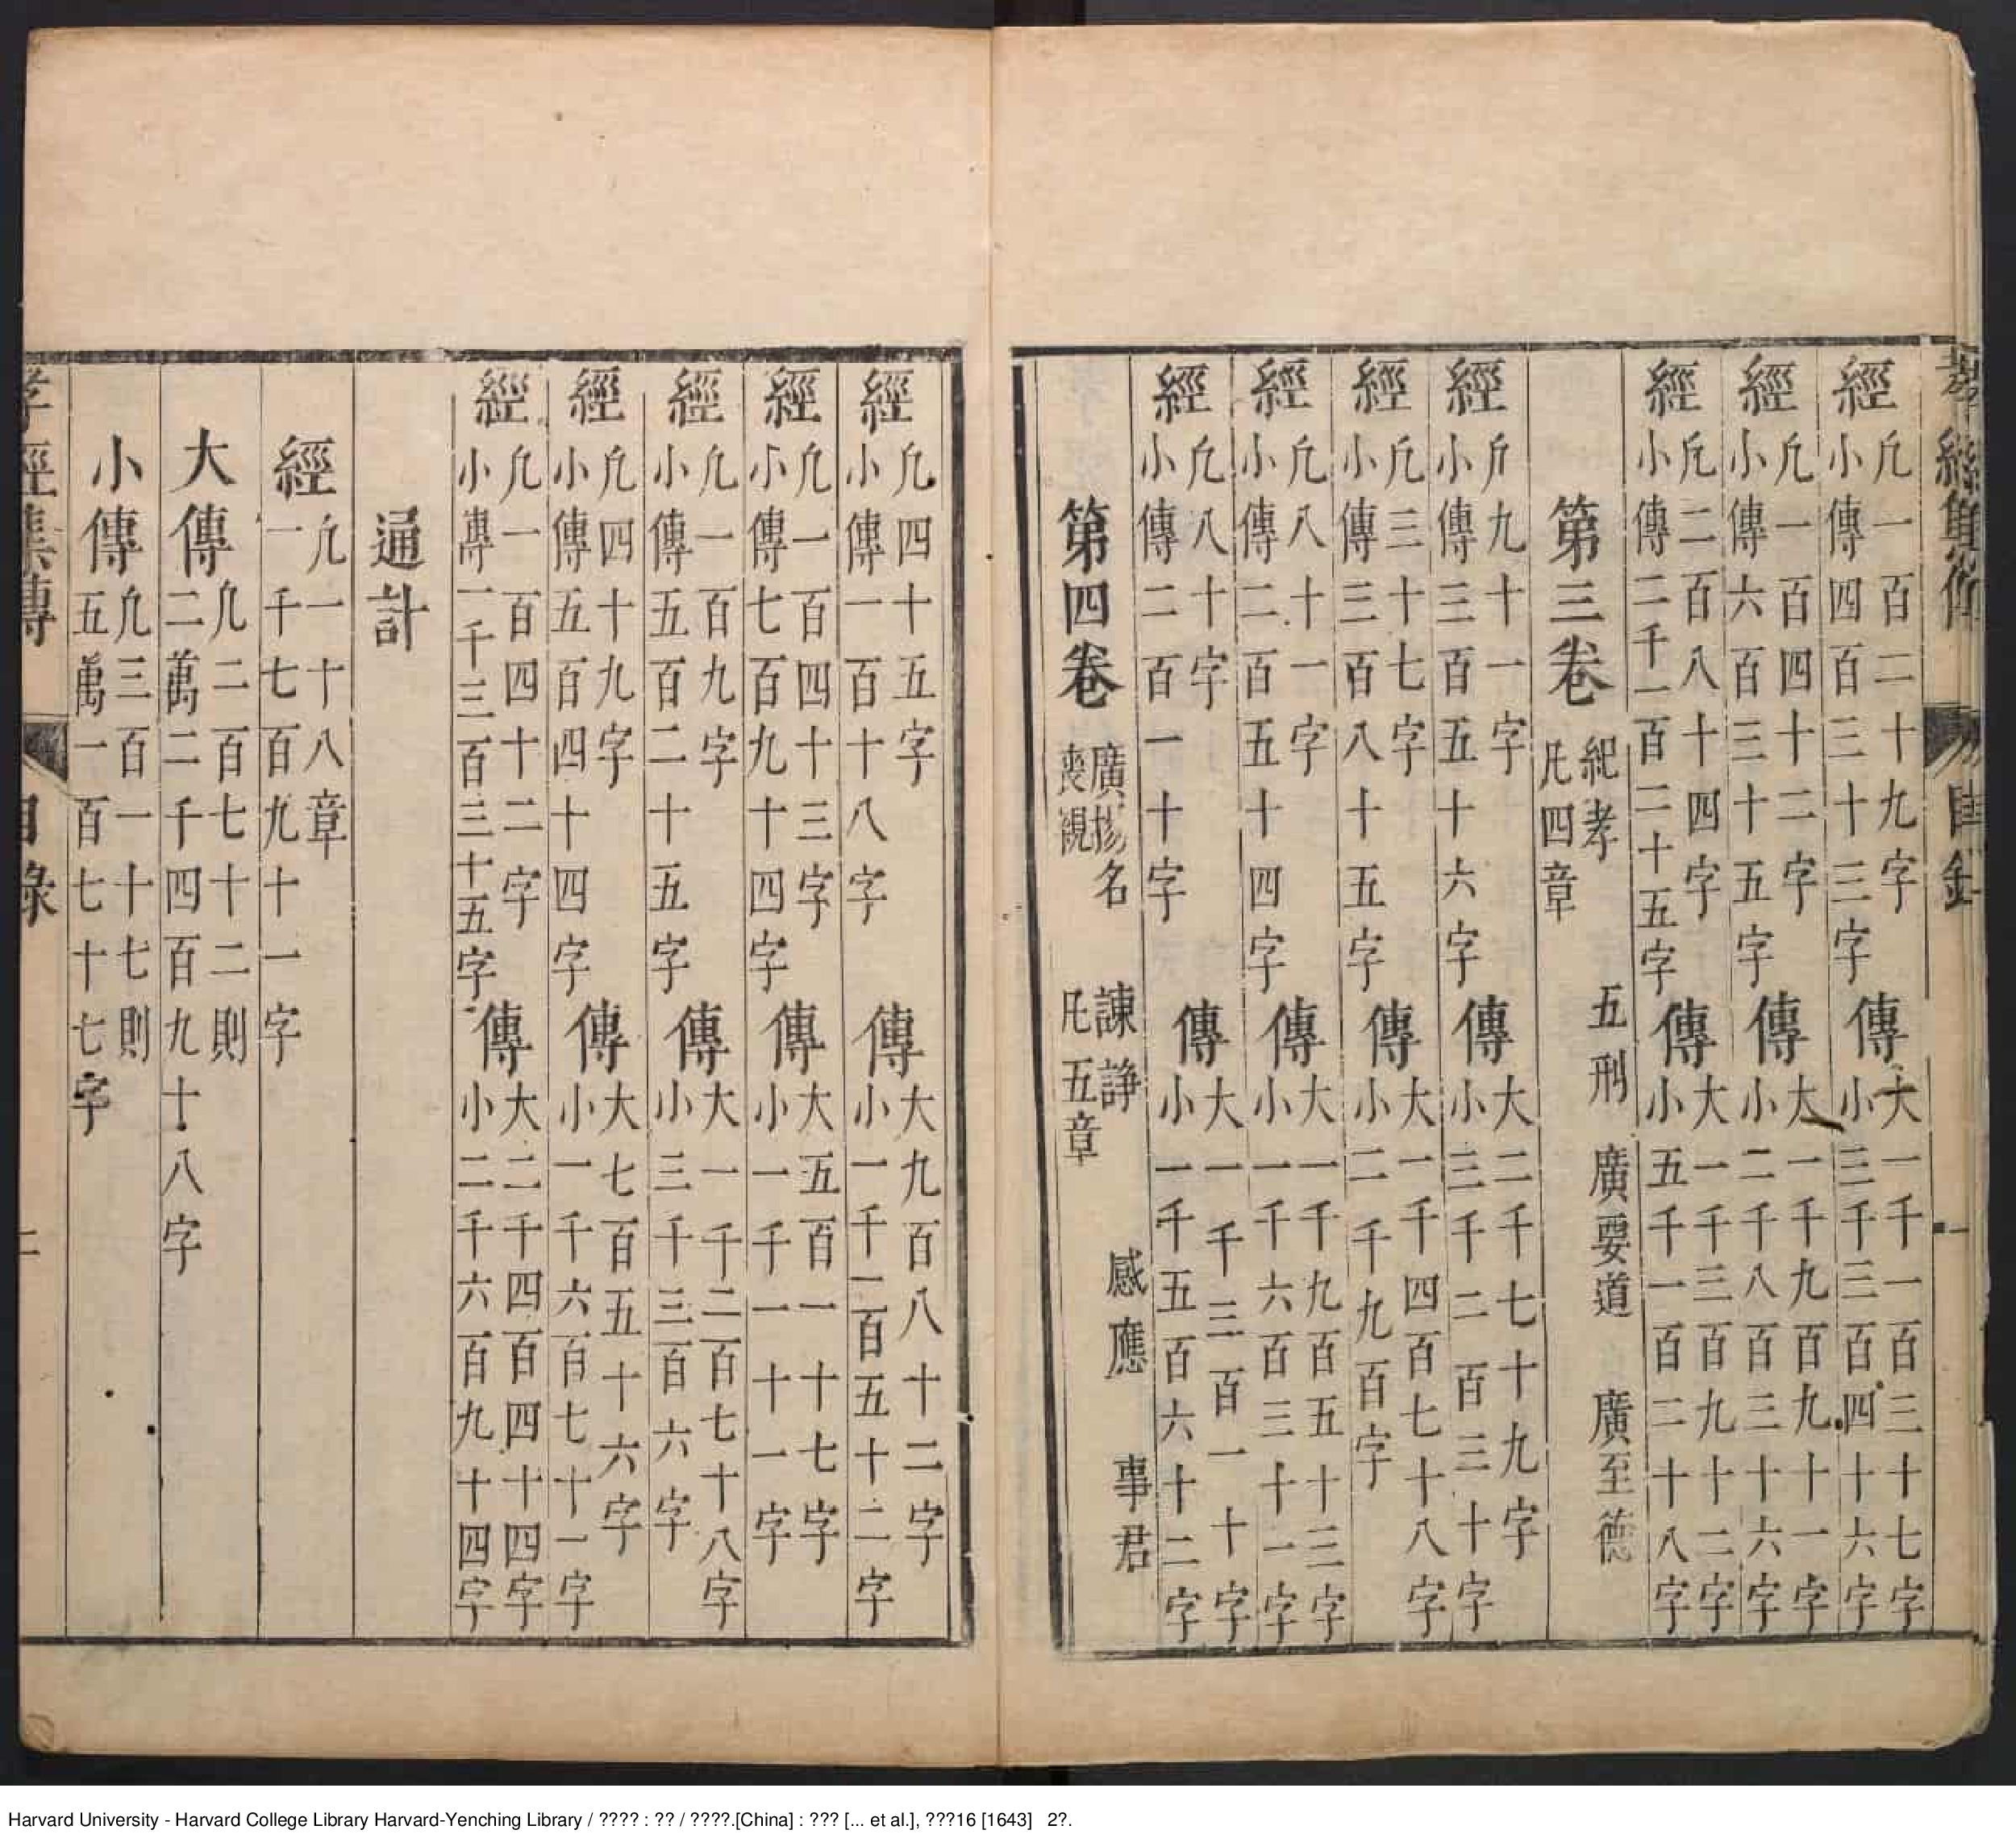 經凢一百二十九字
小傳四百三十三字
傳大一千一百三十七字
小三千三百四十六字
經凢一百四十二字
小傳六百三十五字
傳大一千九百九十一字
小二千八百三十六字
經凢二百八十四字
小傳二千一百二十五字
傳大一千三百九十二字
小五千一百二十八字
第三卷 紀孝 五刑 廣要道 廣至德
凡四章
經凢九十一字
小傳三百五十六字
傳大二千七十九字
小三千二百三十字
經凢三十七字
小傳三百八十五字
傳大一千四百七十八字
小二千九百字
經凢八十一字
小傳二百五十四字
傳大一千九百五十三字
小一千六百三十一字
經凢八十字
小傳二百一十字
傳大一千三百一十字
小一千五百六十二字
第四卷 廣揚名 諫諍 感應 事君
喪親 凡五章
經凢四十五字
小傳一百十八字
傳大九百八十二字
小一千一百五十二字
經凢一百四十三字
小傳七百九十四字
傳大五百一十七字
小一千一十一字
經凢一百九字
小傳五百二十五字
傳大一千二百七十八字
小三千三百六字
經凢四十九字
小傳五百四十四字
傳大七百五十六字
小一千六百七十一字
經凢一百四十二字
小傳一千三百三十五字
傳大二千四百四十四字
小二千六百九十四字
通計
經凢一十八章
一千七百九十一字
大傳凢二百七十二則
二萬二千四百九十八字
小傳凢三百一十七則
五萬一百七十七字
孝經集傳 目錄 二
Harvard University - Harvard College Library Harvard-Yenching Library / ???? : ?? / ????.[China] : ??? [... et al.], ???16 [1643] 2?.